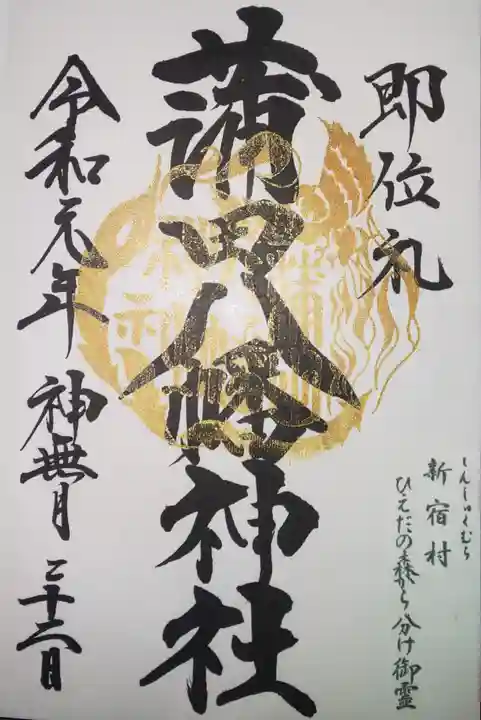 即位礼
しんしゅくむら
新宿村
ひえだの森から分け御霊
蒲田八幡神社
令和元年 神無月 二十二日